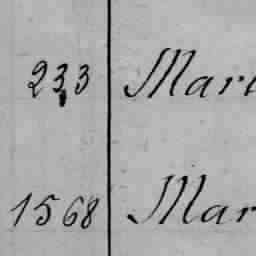 233 Mari
1568 Mar